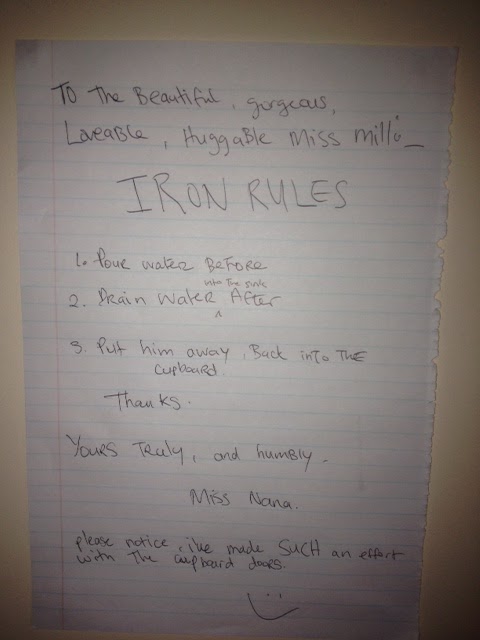 To The Beautiful, gorgeous,
Loveable, Huggable Miss Milli_
IRON RULES
1. Pour water BEFORE
into The sink
2. Drain Water ^ After
3. Put him away, Back into THE
cupboard.
Thanks.
Yours Truly, and humbly.
Miss Nana.
please notice, i've made SUCH an effort
with The cupboard doors.
:)